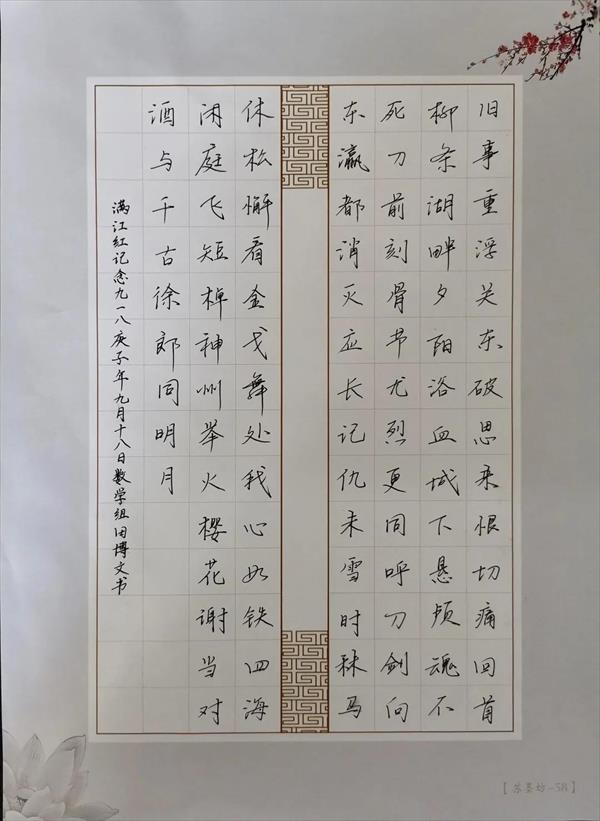 旧事重浮关东破思来恨切痛回首
柳条湖畔夕阳浴血城下悬颅魂不
死刀前刻骨节尤烈更同呼刀剑向
东瀛都消灭应长记仇未雪时秣马
休松懈看金戈舞处我心如铁四海
闲庭飞短棹神州举火樱花谢当对
酒与千古徐郎同明月
满江红记念九一八庚子年九月十八日数学组田博文书
【苏墨坊-58】